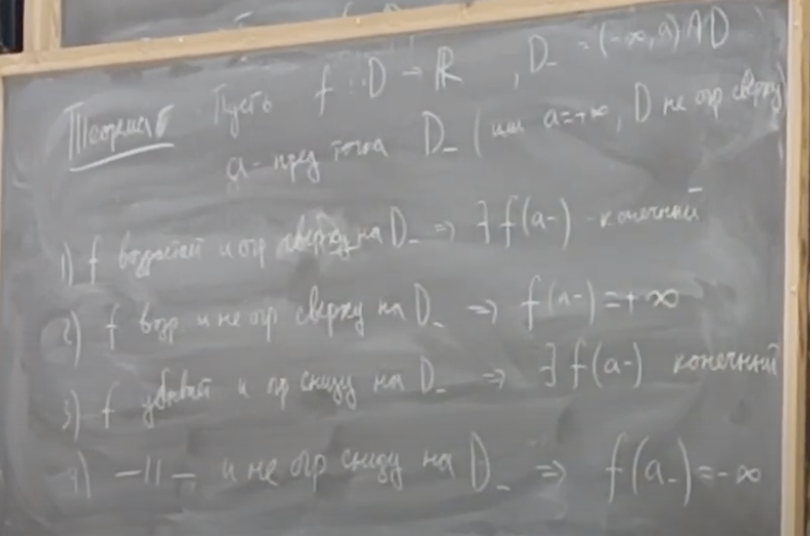 Теорема Пусть f : D → ℝ , D_ = (-∞, a) ∩ D
a - пред точка D_ ( или a = +∞, D не огр сверху)
1) f возрастает и огр сверху на D_ => ∃ f(a-) - конечный
2) f возр и не огр сверху на D_ => f(a-) = +∞
3) f убывает и огр снизу на D_ => ∃ f(a-) конечный
4) -||- и не огр снизу на D_ => f(a-) = -∞